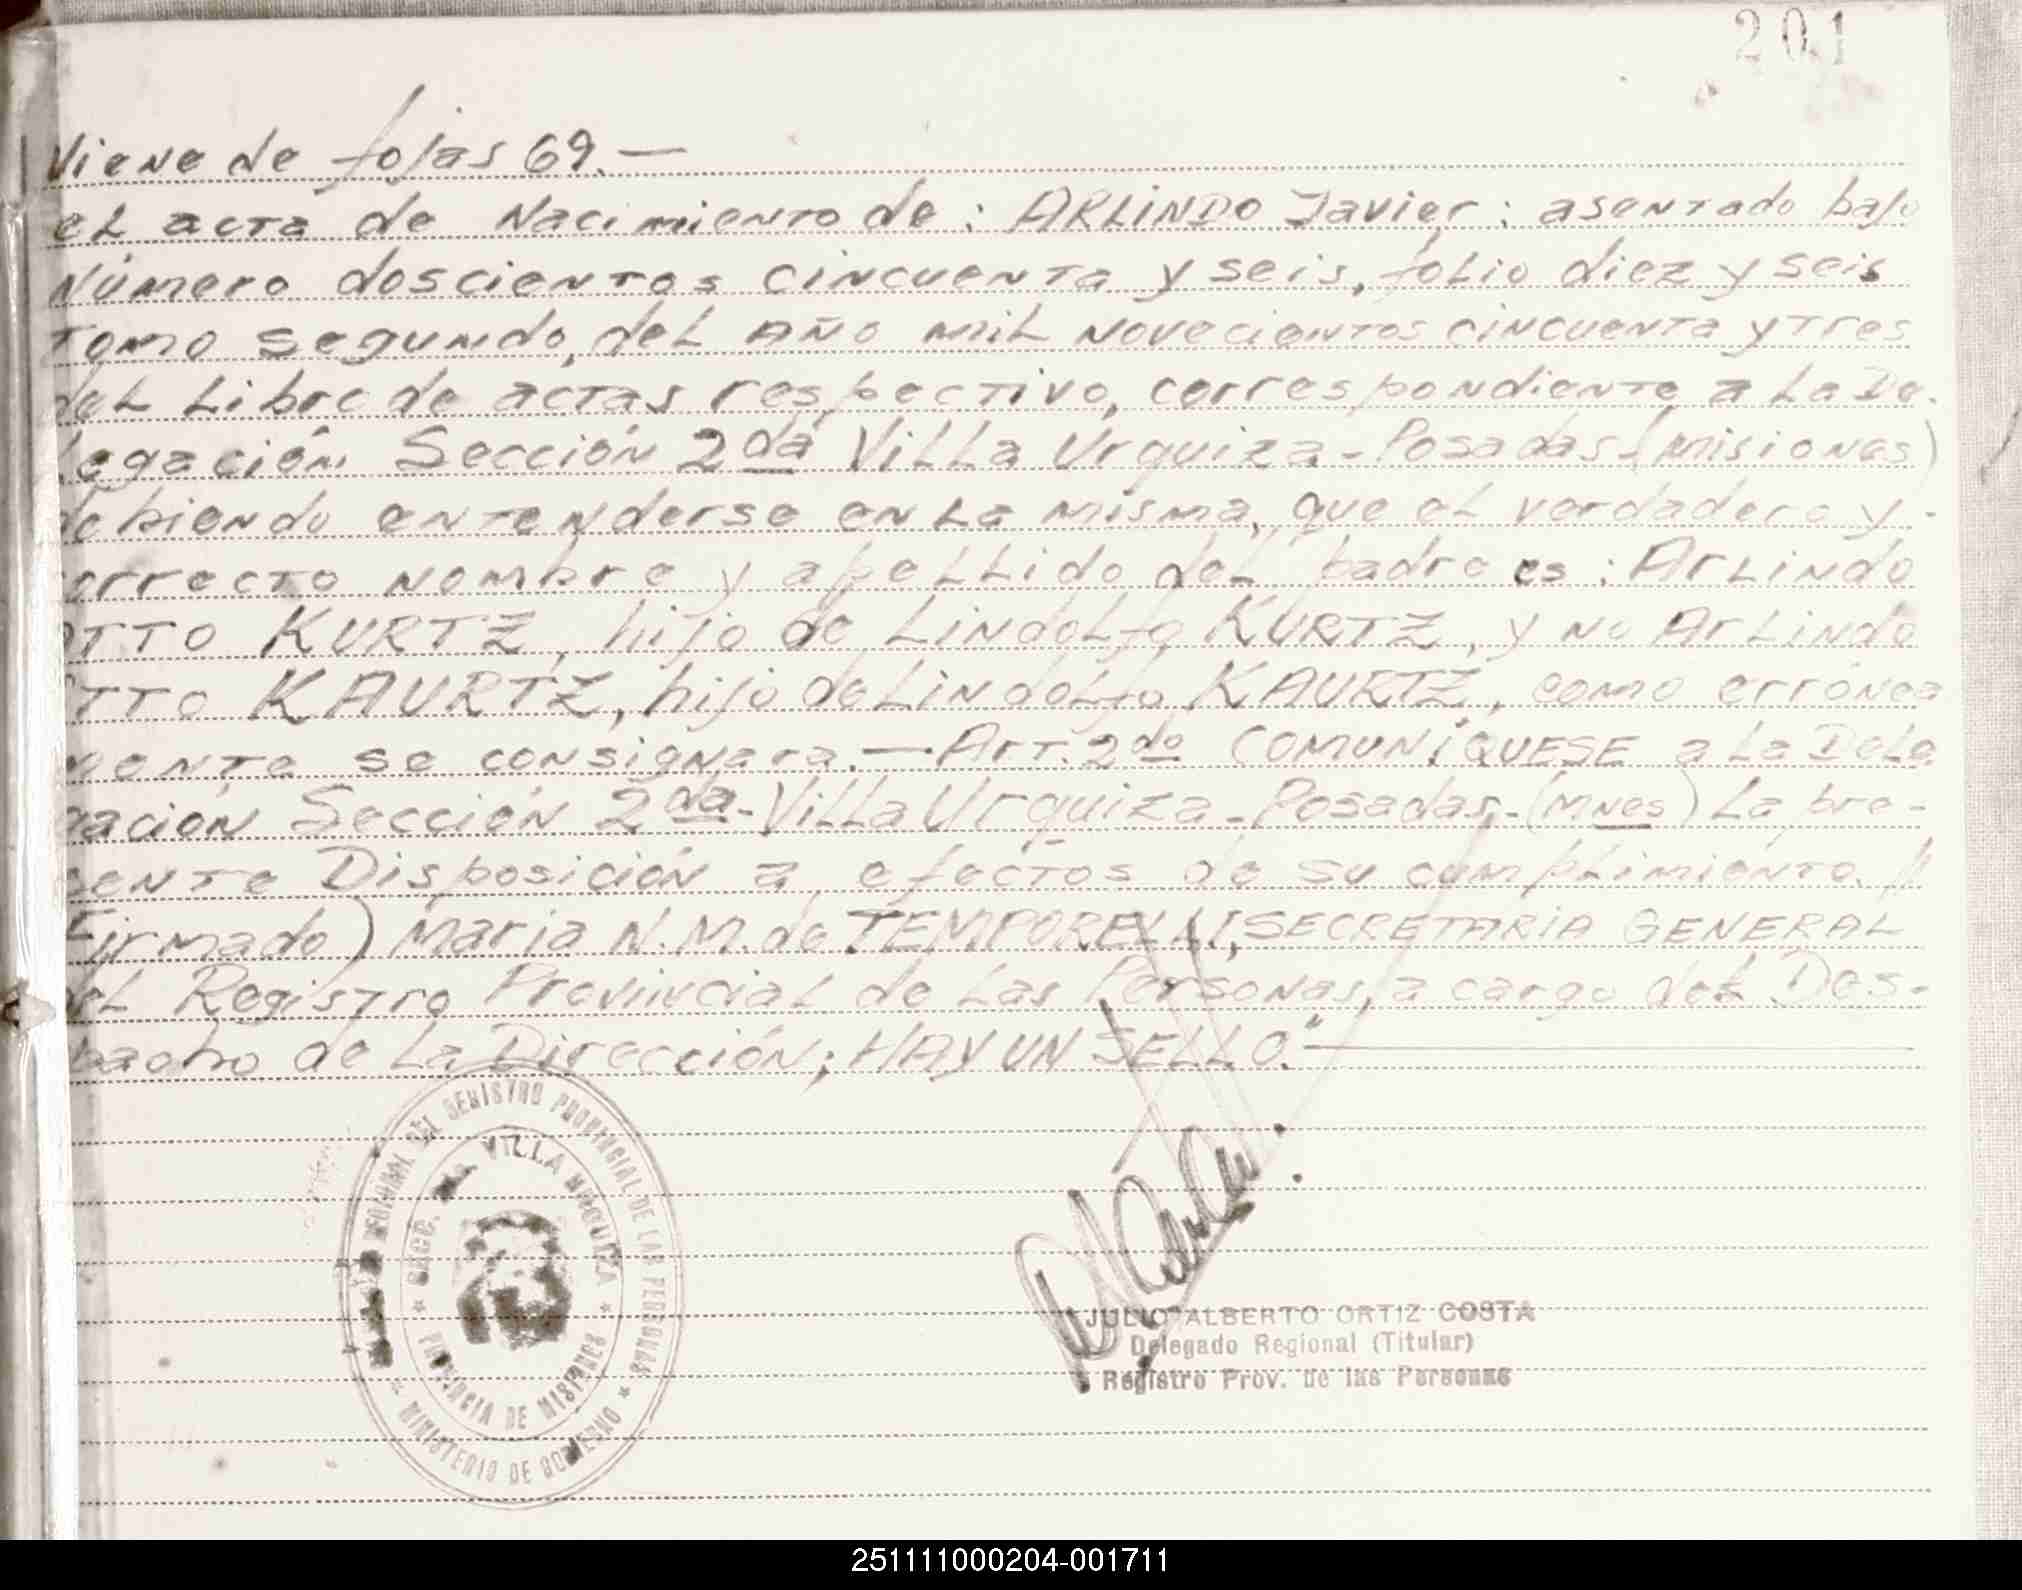 201
Viene de fojas 69.—
el acta de Nacimiento de: ARLINDO Javier: asentado bajo
Número doscientos cincuenta y seis, folio diez y seis
Tomo segundo, del Año mil novecientos cincuenta y tres
del Libro de actas respectivo, correspondiente a la De-
legación Sección 2da Villa Urquiza-Posadas-(Misiones)
debiendo entenderse en la misma, que el verdadero y-
correcto nombre y apellido del padre es: Arlindo
OTTO KURTZ, hijo de Lindolfo KURTZ, y no Arlindo
OTTO KAURTZ, hijo de Lindolfo KAURTZ, como errónea
mente se consignara.— Art. 2do COMUNÍQUESE a la Dele
gación Sección 2da-Villa Urquiza-Posadas-(Mnes) la pre-
sente Disposición a efectos de su cumplimiento.//
Firmado) Maria N.M. de TEMPORELLI, SECRETARIA GENERAL
del Registro Provincial de las Personas, a cargo del Des-
pacho de la Dirección; HAY UN SELLO."
REGIONAL DEL REGISTRO PROVINCIAL DE LAS PERSONAS
SECC. VILLA URQUIZA
PROVINCIA DE MISIONES
MINISTERIO DE GOBIERNO
JULIO ALBERTO ORTIZ COSTA
Delegado Regional (Titular)
Registro Prov. de las Personas
251111000204-001711